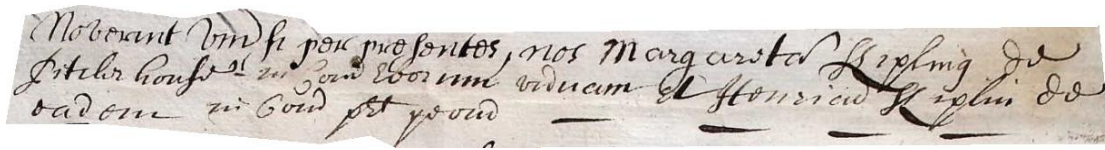 Noverint Univsi per presentes, nos Margareta Kipling de
house in Com Eborum viduam et Henricu Kiplin de
eadem in Com pd yeoma